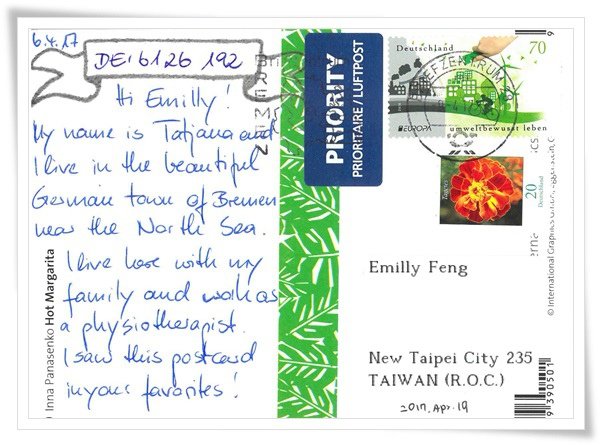 6.4.17
DE: 6126 192
Hi Emilly!
My name is Tatjana and
I live in the beautiful
German town of Bremen
near the North Sea.
I live here with my
family and work as
a physiotherapist.
I saw this postcard
in your favorites!
Inna Panasenko Hot Margarita
PRIORITY
PRIORITAIRE / LUFTPOST
Deutschland
70
EUROPA
umweltbewusst leben
BRIEFZENTRUM
Tagetes
20
Deutschland
© International Graphics
Emilly Feng
New Taipei City 235
TAIWAN (R.O.C.)
2017. Apr. 19
9
9390501